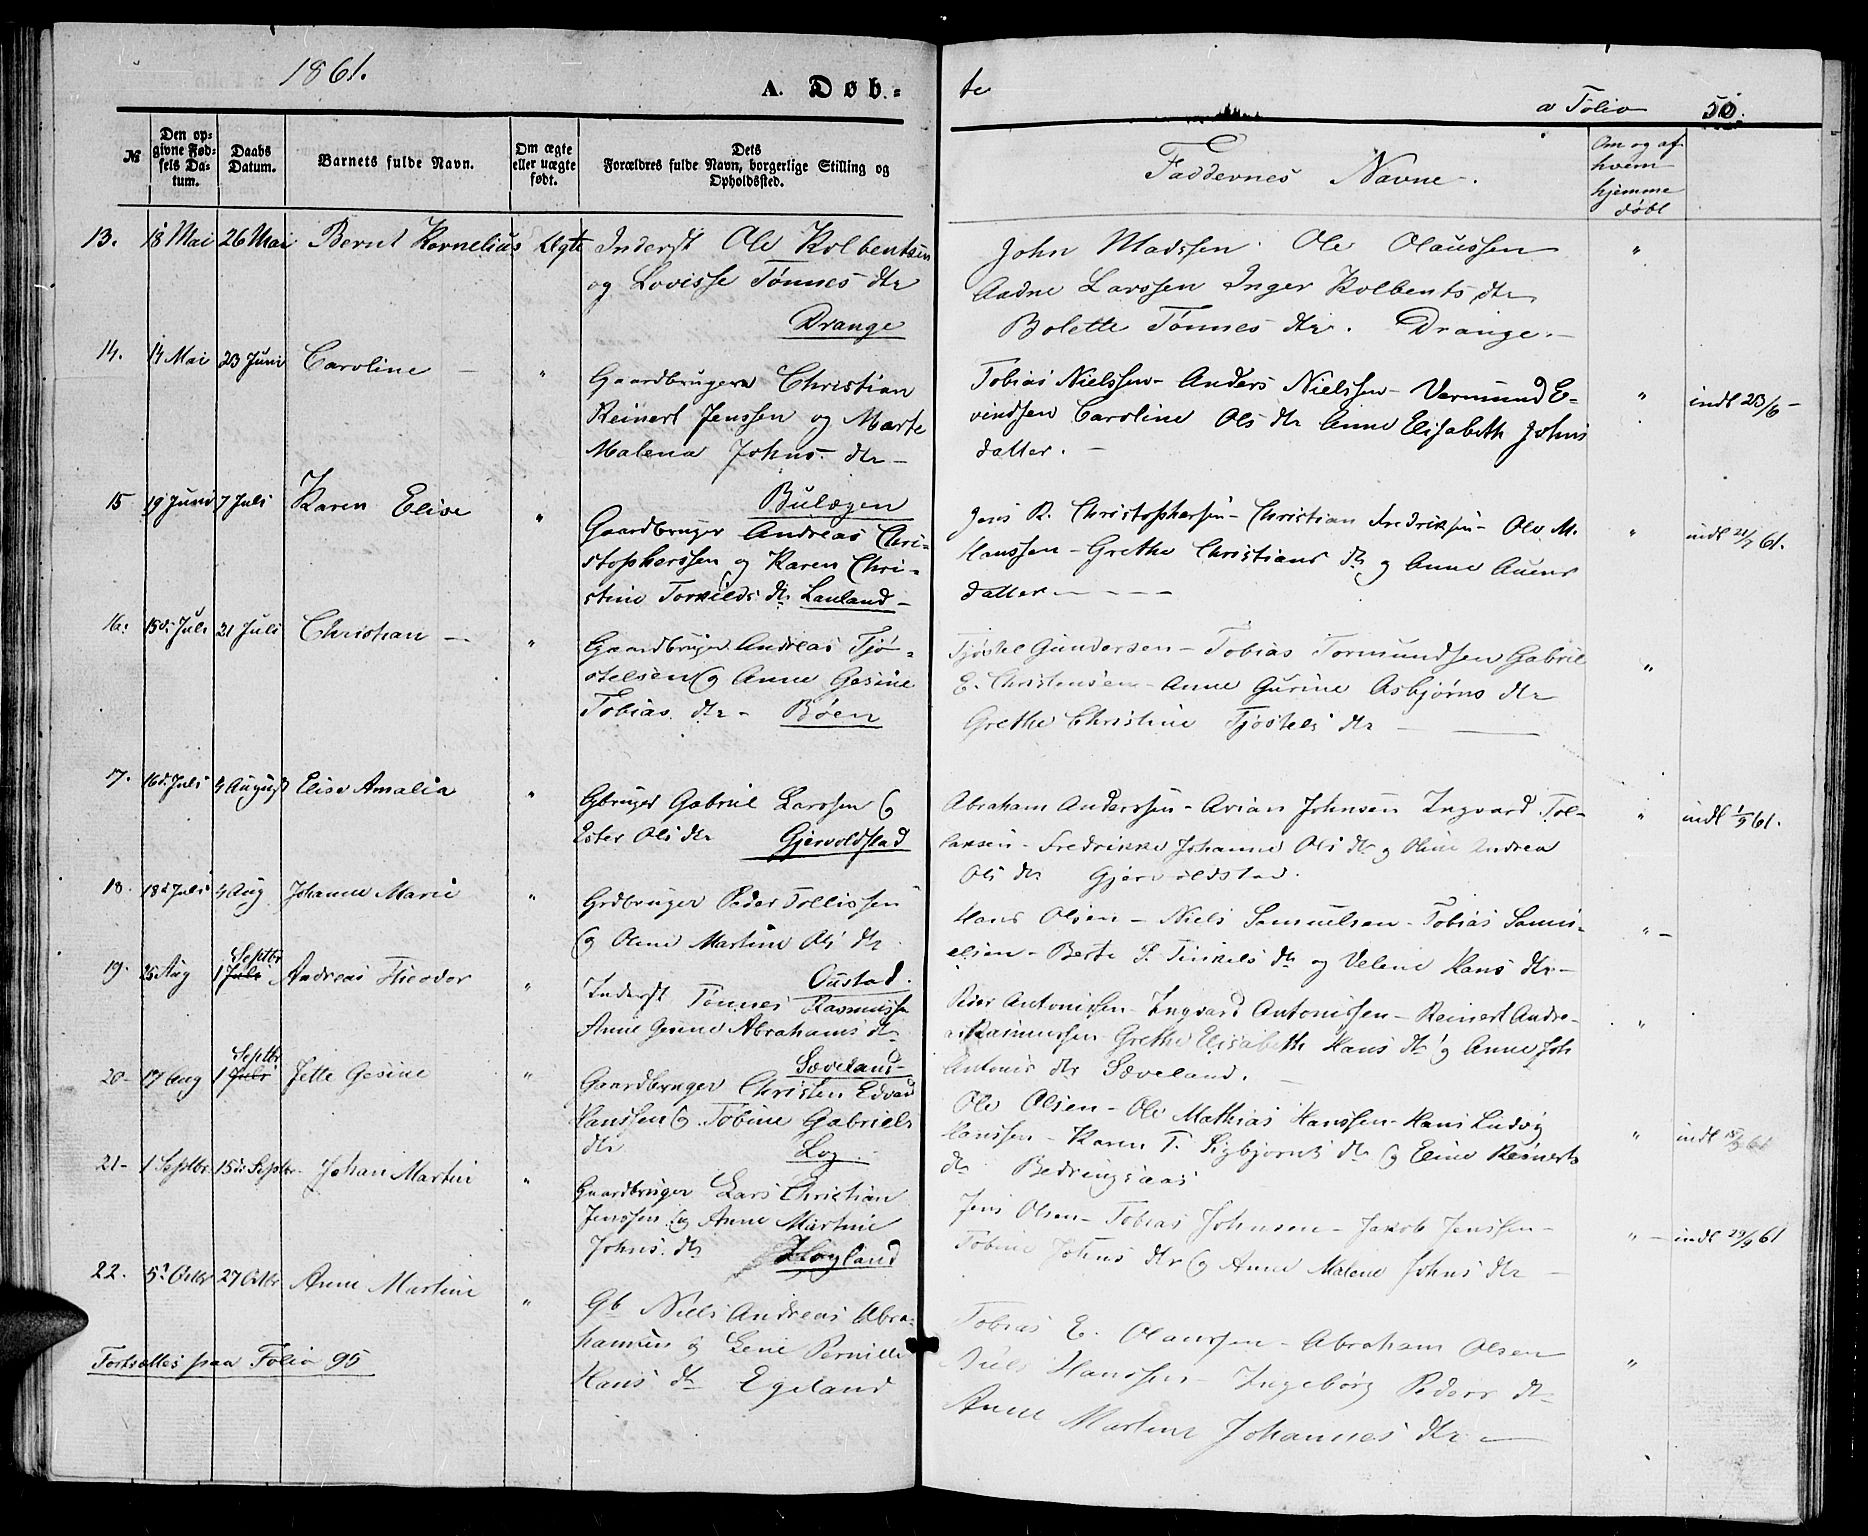 1861.
A. Døb-
te
a Folio 50.
№
Den opgivne Fødsels Datum.
Daabs Datum.
Barnets fulde Navn.
Om ægte eller uægte født.
Dets Forældres fulde Navn, borgerlige Stilling og Opholdssted.
Faddernes Navne.
Om og af hvem hjemme døbt
13. 18 Mai 26 Mai Bernt Kornelius Ægte Inderst Ole Kolbentsen
og Lovisse Tønnes dtr
Drange
John Madssen Ole Olaussen "
Aadne Larssen Inger Kolbents dtr
Bolette Tønnes dtr. Drange.
14. 14 Mai 23 Juni Caroline "
Gaardbruger Christian
Reinert Jenssen og Marte
Malena Johns dtr
Bulægen
Tobias Nielssen - Anders Nielssen - Vermund E-
vindsen Caroline Ols dtr Anne Elisabeth Johns
datter. " indt 23/6
15 19 Juni 7 Juli Karen Elise "
Gaardbruger Andreas Chri-
stopherssen og Karen Chri-
stine Torkilds dtr Lauland
Jens R. Christophersen - Christian Fredriksen - Ole M.
Hanssen - Grethe Christians dtr og Anne Auens
datter " indt 21/7 61.
16. 15d Juli 21 Juli Christian "
Gaardbruger Andreas Tjø-
stelsen og Anne Gesine
Tobias dtr - Bøen
Tjøstel Gundersen - Tobias Tormundsen Gabriel
E. Christensen - Anne Gurine Asbjørns dtr
Grethe Christine Tjøstels dtr "
17. 16d. Juli 4 August Elise Amalia "
Gbruger Gabriel Larssen og
Ester Ols dtr Gjervoldstad
Abraham Anderssen - Arian Johnsen Ingvard Tol-
laksen - Fredrikke Johanne Ols dtr og Oline Andrea
Ols dtr Gjervoldstad. " indt 1/9 61.
18. 18d Juli 4 Aug Johanne Marie "
Grdbruger Peder Tollissen
og Oline Martine Ols dtr
Oustad.
Hans Olsen - Niels Samuelsen - Tobias Samu-
elsen - Berte S. Tinkels dtr og Velene Hans dtr "
19. 25 Aug 1 Septbr Andreas Theodor "
Inderst Tønnes Rasmussen
Anne Gesine Abrahams dtr
Sæveland
Peder Antonissen - Ingvard Antonissen - Reinert Andre-
as Rasmussen Grethe Elisabeth Hans dtr og Anne Joh
Antonis dtr Sæveland. "
20 - 17 Aug 1 Septbr Jette Gesine "
Gaardbruger Christen Edvard
Hanssen og Tobine Gabriels
dtr Log
Ole Olsen - Ole Mathias Hanssen - Hans Ludvig
Hanssen - Karen T. Sigbjørns dtr og Eline Reinerts
dtr Bedringsaas " indt 15/9 61
21 - 1 Septbr 15d. Septbr Johan Martin "
Gaardbruger Lars Christian
Jenssen og Anne Martine
Johns dtr Høyland
Jens Olsen - Tobias Johnsen - Jakob Jenssen -
Tobine Johns dtr og Anne Malene Johns dtr " indt 29/9 61
22. 5d Octbr 27 Octbr Anne Martine "
Gb Niels Andreas Abra-
hamsen og Lene Pernille
Hans dtr Egeland
Tobias E. Olaussen - Abraham Olsen
Nils Hanssen - Ingeborg Peders dtr
Anne Martine Johannes dtr "
Fortsættes paa Folio 95